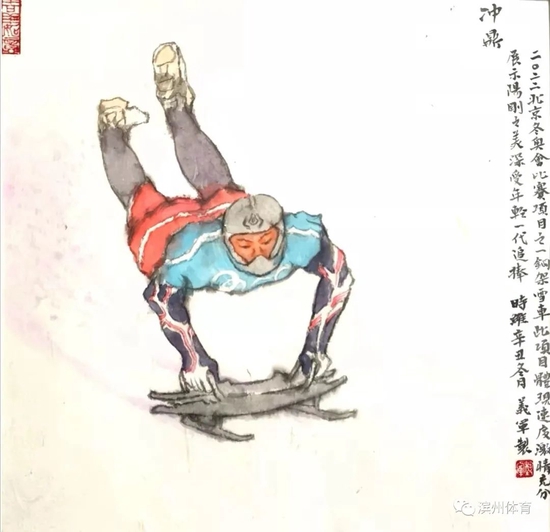 冲鼎
二〇二二北京冬奥會比赛項目之一鋼架雪車此項目體現速度激情充分
展示陽剛之美深受年輕一代追捧 時維辛丑冬月 義軍製
滨州体育